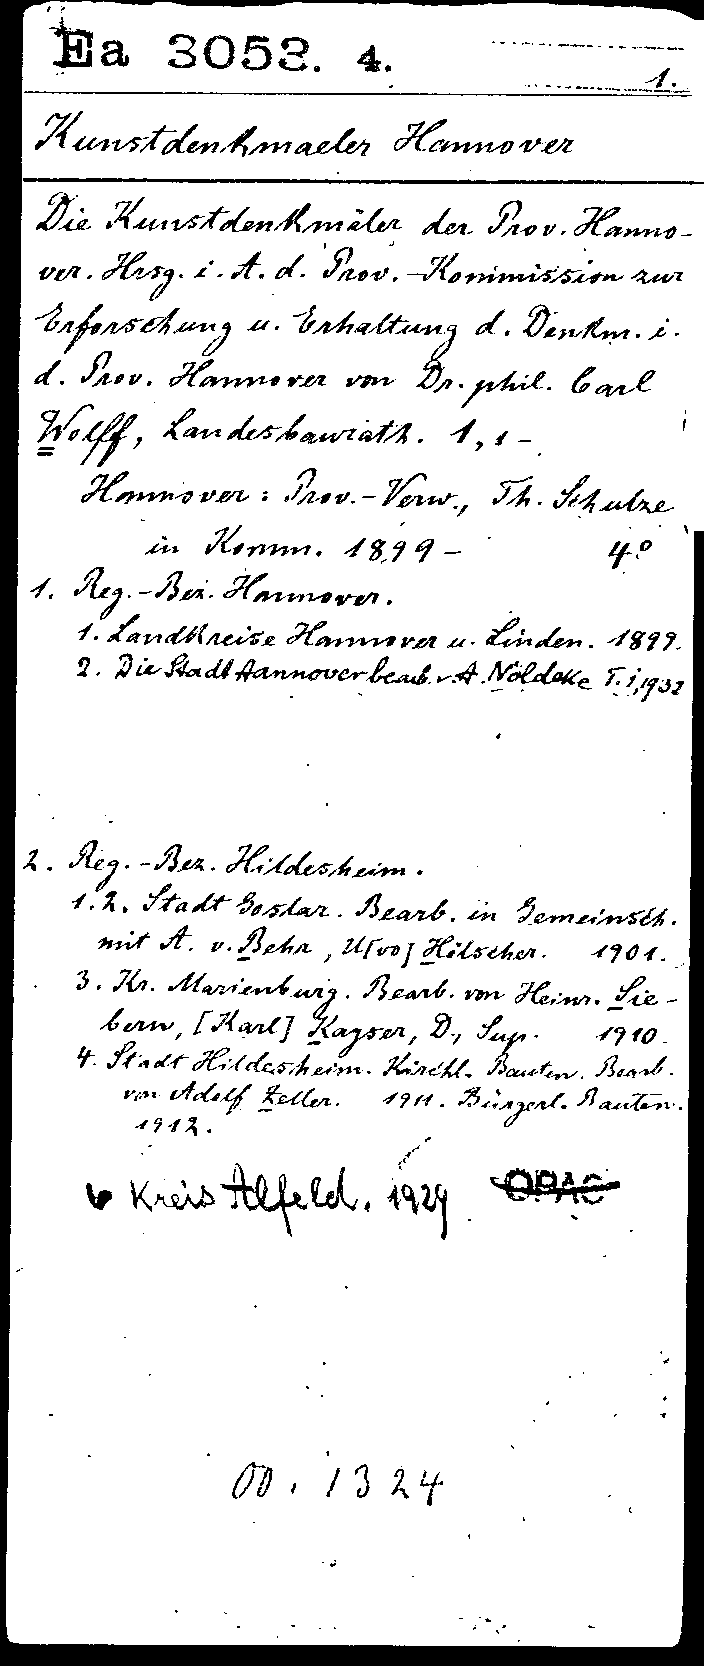 Ea 3053. 4.
1.
Kunstdenkmaeler Hannover
Die Kunstdenkmäler der Prov. Hanno-
ver. Hrsg. i. A. d. Prov.-Kommission zur
Erforschung u. Erhaltung d. Denkm. i.
d. Prov. Hannover von Dr. phil. Carl
Wolff, Landesbaurath. 1,1-
Hannover: Prov.-Verw., Th. Schulze
in Komm. 1899- 4°
1. Reg.-Bez. Hannover.
1. Landkreise Hannover u. Linden. 1899.
2. Die Stadt Hannover bearb. v. A. Nöldeke T. 1, 1932
2. Reg.-Bez. Hildesheim.
1.2. Stadt Goslar. Bearb. in Gemeinsch.
mit A. v. Behr, U[vo] Hölscher. 1901.
3. Kr. Marienburg. Bearb. von Heinr. Sie-
bern, [Karl] Kayser, D., Sup. 1910.
4. Stadt Hildesheim. Kirchl. Bauten. Bearb.
von Adolf Zeller. 1911. Bürgerl. Bauten.
1912.
6 Kreis Alfeld. 1929 OPAC
00. 1324